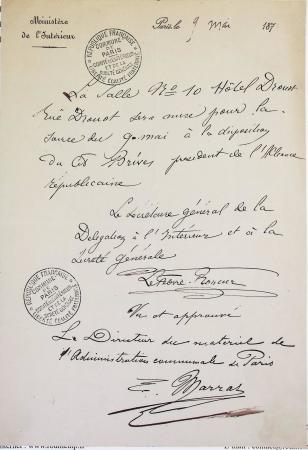 Ministère
de l'Intérieur
Paris, le 9 Mai 187
RÉPUBLIQUE FRANÇAISE
COMMUNE
DE
PARIS
COMITÉ
ET DE LA
SURETÉ GÉNÉRALE
LIBERTÉ ÉGALITÉ FRATERNITÉ
La Salle No 10 Hôtel Drouot
rue Drouot sera mise pour la
séance du 9 mai à la disposition
du Cit Brives président de l'Alliance
républicaine
Le Secrétaire général de la
Délégation à l'Intérieur et à la
Sureté générale
Vu et approuvé
Le Directeur du matériel de
l'Administration communale de Paris
E. Marras
RÉPUBLIQUE FRANÇAISE
COMMUNE
DE
PARIS
ET DE LA
LIBERTÉ ÉGALITÉ FRATERNITÉ